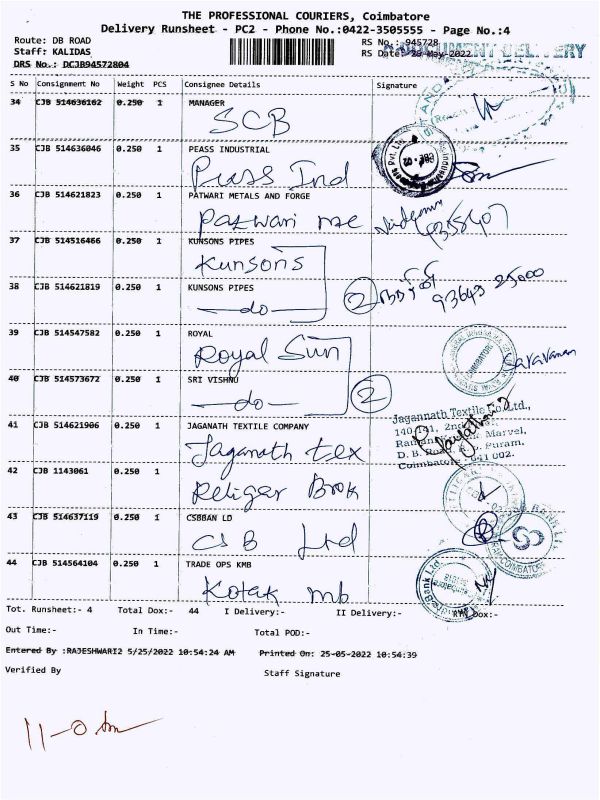 THE PROFESSIONAL COURIERS, Coimbatore
Delivery Runsheet - PC2 - Phone No.:0422-3505555 - Page No.:4
Route: DB ROAD
RS No.: 945728
Staff: KALIDAS
RS Date: 28-May-2022
DRS No.: DCJB94572804
S No Consignment No Weight PCS Consignee Details Signature
34 CJB 514636162 0.250 1 MANAGER
SCB
35 CJB 514636046 0.250 1 PEASS INDUSTRIAL
Peass Ind
36 CJB 514621823 0.250 1 PATWARI METALS AND FORGE
Patwari me
37 CJB 514516466 0.250 1 KUNSONS PIPES
Kunsons
38 CJB 514621819 0.250 1 KUNSONS PIPES
-do- 2 93643 25000
39 CJB 514547582 0.250 1 ROYAL
Royal Sun Saravanan
40 CJB 514573672 0.250 1 SRI VISHNU
-do- 2
41 CJB 514621906 0.250 1 JAGANATH TEXTILE COMPANY
Jaganath tex
Jagannath Textile Co. Ltd.,
140 141, 2nd
Marvel,
D. B. Road, Puram,
Coimbatore - 641 002.
42 CJB 1143061 0.250 1
Religar Brok
43 CJB 514637119 0.250 1 CSBBAN LD
CSB Ltd
44 CJB 514564104 0.250 1 TRADE OPS KMB
Kotak mb
Tot. Runsheet:- 4 Total Dox:- 44 I Delivery:- II Delivery:- Dox:-
Out Time:- In Time:- Total POD:-
Entered By :RAJESHWARI2 5/25/2022 10:54:24 AM Printed On: 25-05-2022 10:54:39
Verified By Staff Signature